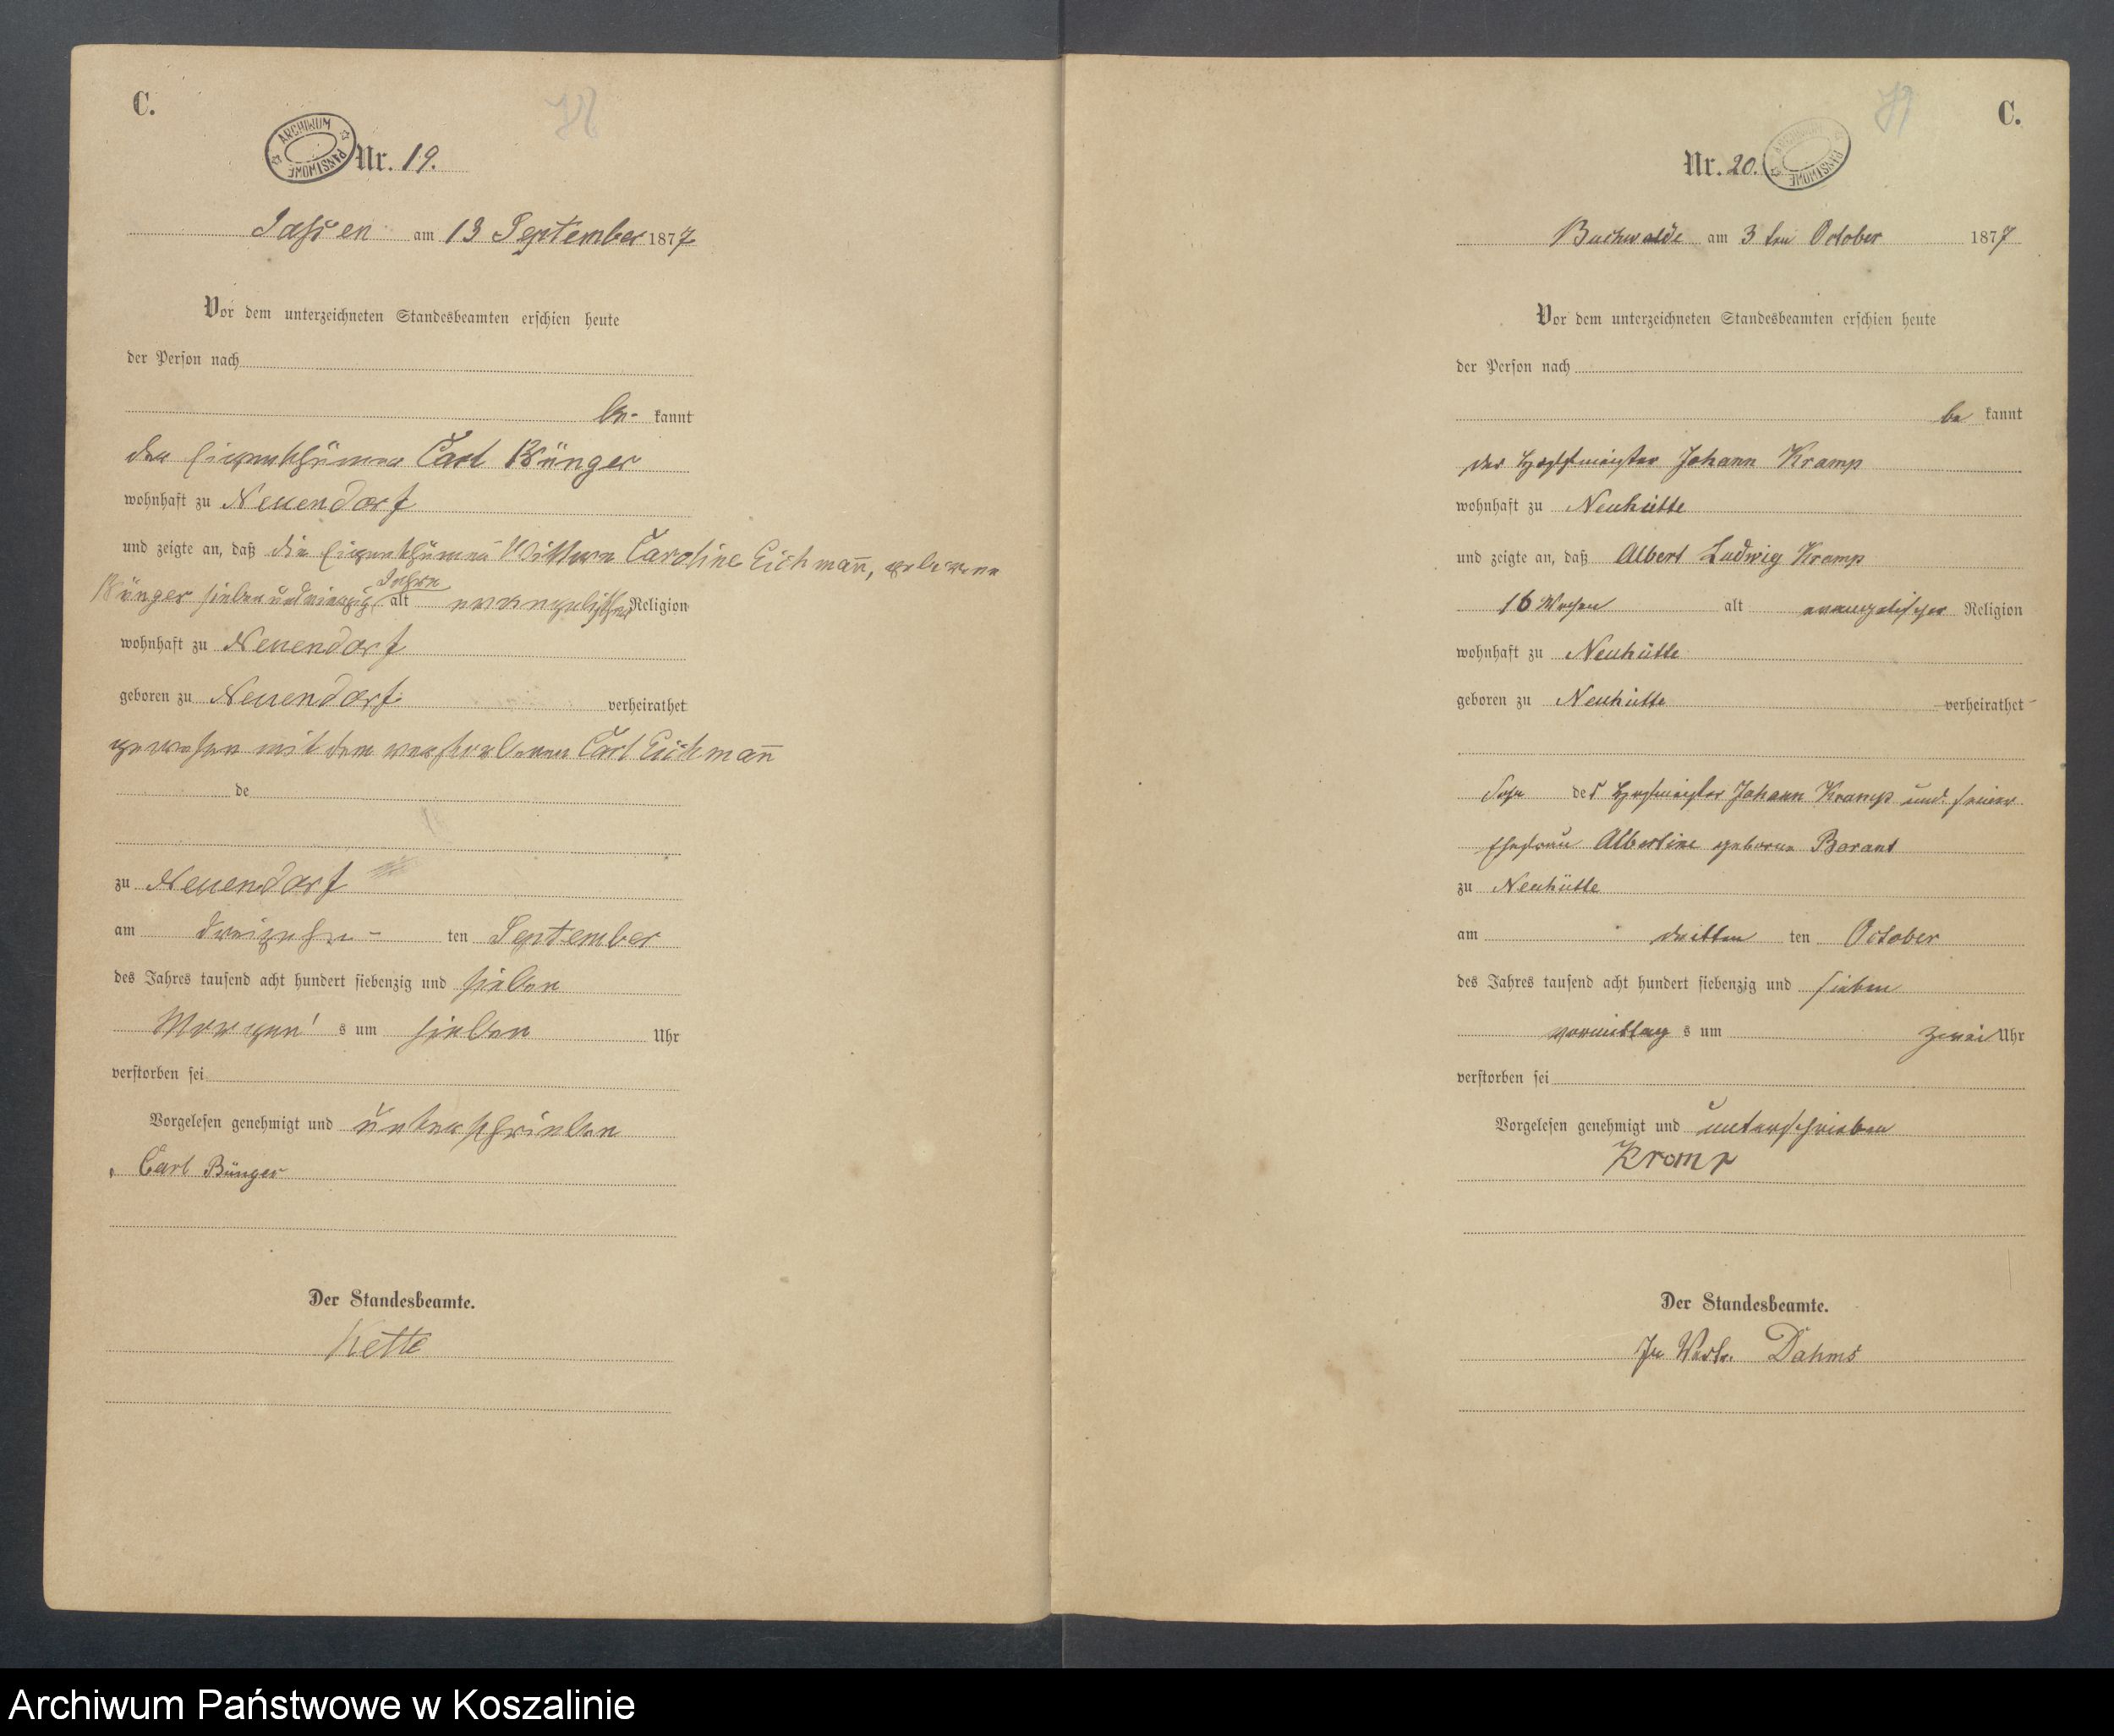 C.
ARCHIWUM PAŃSTWOWE
Nr. 19.
Jassen am 13 September 1877
Vor dem unterzeichneten Standesbeamten erschien heute
der Person nach
be- kannt
der Eigenthümer Carl Bünger
wohnhaft zu Neuendorf
und zeigte an, daß die Eigenthümer Wittwe Caroline Eichmañ, geborene
Bünger sieben und vierzig Jahre alt evangelischer Religion
wohnhaft zu Neuendorf
geboren zu Neuendorf verheirathet
gewesen mit dem verstorbenen Carl Eichmañ
de
zu Neuendorf
am dreizehn- ten September
des Jahres tausend acht hundert siebenzig und sieben
Morgen's um sieben Uhr
verstorben sei
Vorgelesen genehmigt und unterschrieben
Carl Bünger
Der Standesbeamte.
Kette
C.
Nr. 20.
ARCHIWUM PAŃSTWOWE
Buchwalde am 3 ten October 1877
Vor dem unterzeichneten Standesbeamten erschien heute
der Person nach
be kannt
der Johann Kramp
wohnhaft zu Neuhütte
und zeigte an, daß Albert Ludwig Kramp
16 Wochen alt evangelischer Religion
wohnhaft zu Neuhütte
geboren zu Neuhütte verheirathet
Sohn des Johann Kramp und seiner
Ehefrau Albertine geborne Barant
zu Neuhütte
am dritten ten October
des Jahres tausend acht hundert siebenzig und sieben
vormittag s um zwei Uhr
verstorben sei
Vorgelesen genehmigt und unterschrieben
Kramp
Der Standesbeamte.
In Vertr. Dahms
Archiwum Państwowe w Koszalinie